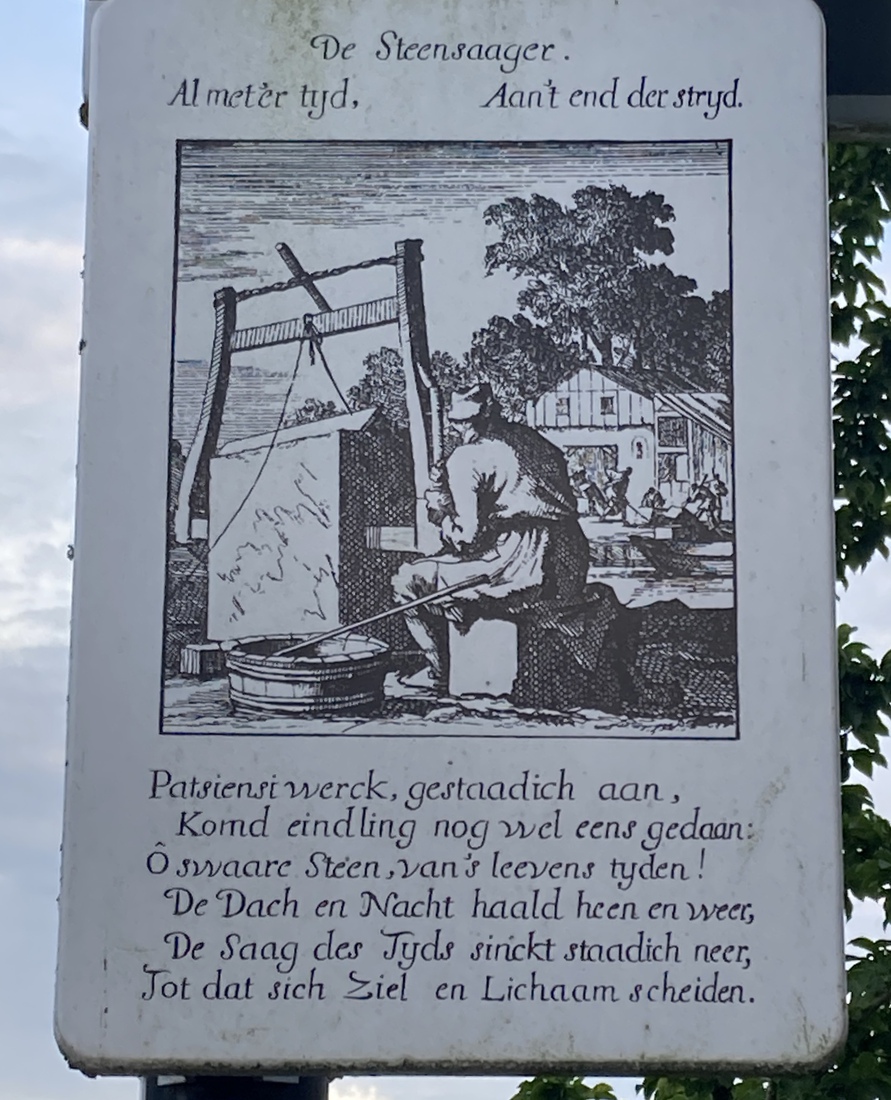 De Steensaager.
Al met'er tyd, Aan't end der stryd.
Patsiensi werck, gestaadich aan,
Komd eindling nog wel eens gedaan:
Ô swaare Steen, van's leevens tyden!
De Dach en Nacht haald heen en weer,
De Saag des Tyds sinckt staadich neer,
Tot dat sich Ziel en Lichaam scheiden.